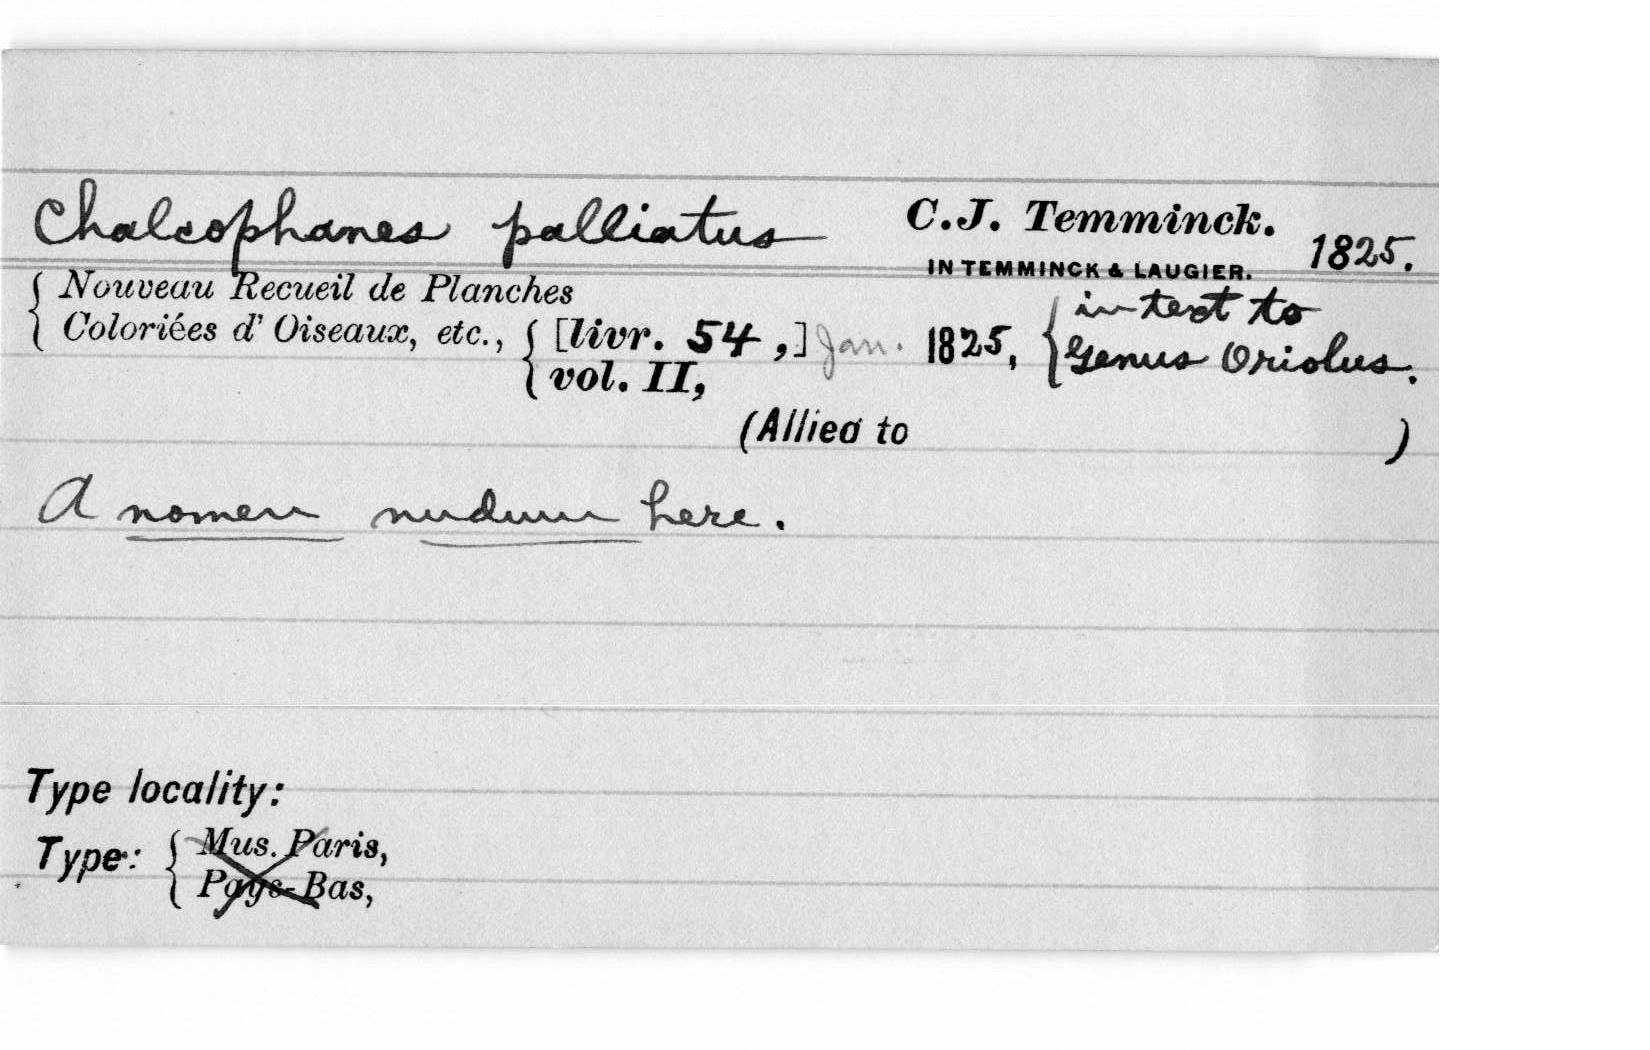 Chalcophanes palliatus C.J. Temminck. 1825.
IN TEMMINCK & LAUGIER.
Nouveau Recueil de Planches
Coloriées d' Oiseaux, etc., [livr. 54,] Jan. 1825, in text to
vol. II, Genus Oriolus.
(Allied to )
A nomen nudum here.
Type locality:
Type: Mus. Paris,
Pays-Bas,